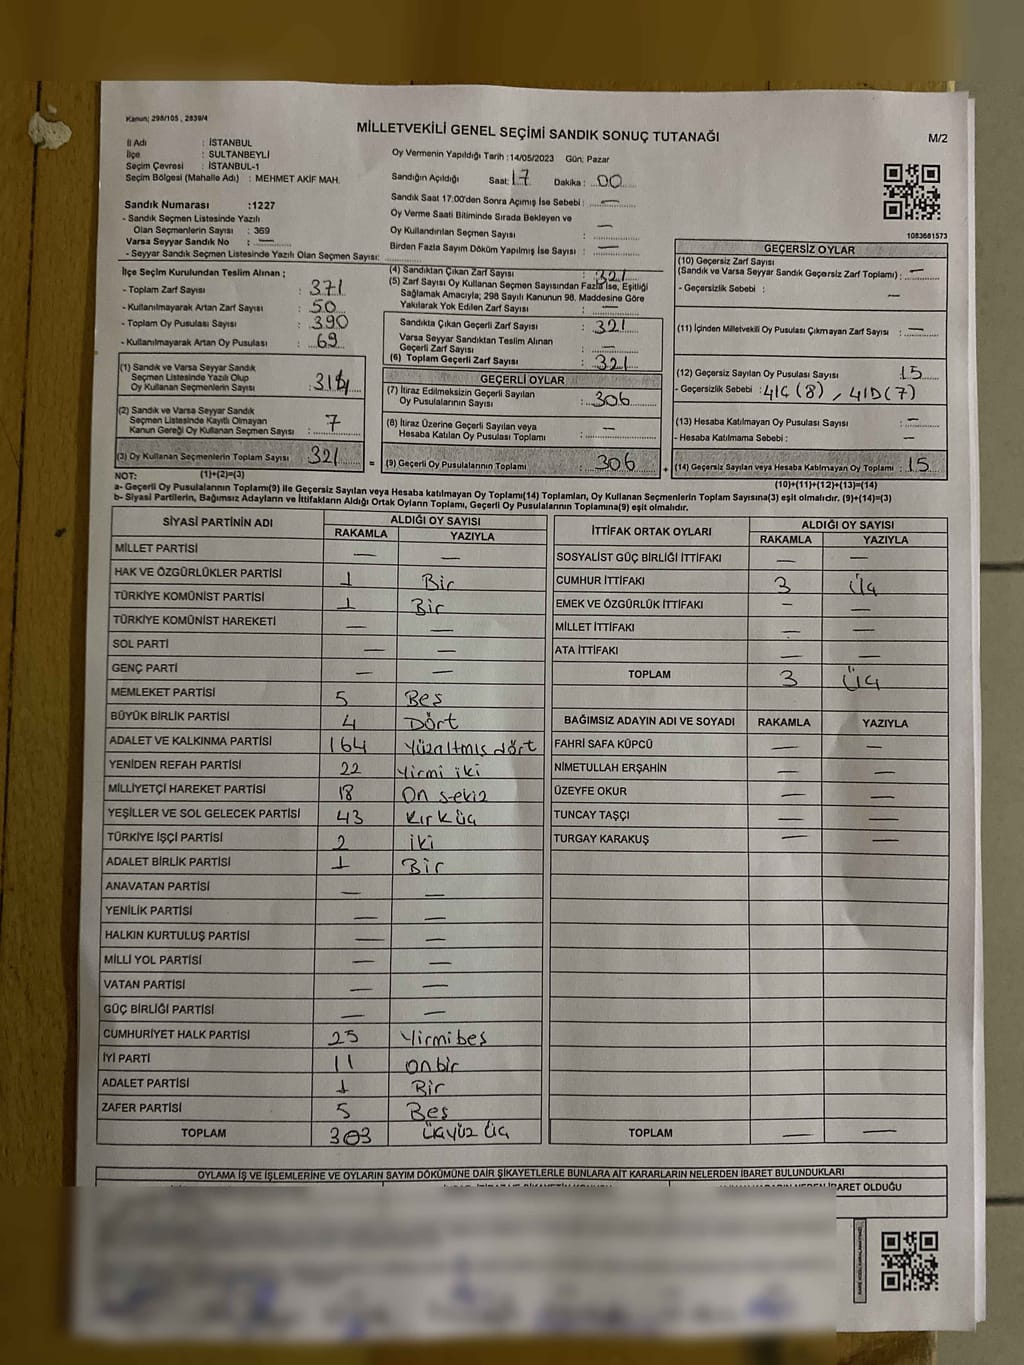 Kanun; 298/105 , 2839/4
MİLLETVEKİLİ GENEL SEÇİMİ SANDIK SONUÇ TUTANAĞI
M/2
İl Adı : İSTANBUL
İlçe : SULTANBEYLİ
Seçim Çevresi : İSTANBUL-1
Seçim Bölgesi (Mahalle Adı) : MEHMET AKİF MAH.
Oy Vermenin Yapıldığı Tarih :14/05/2023 Gün: Pazar
Sandığın Açıldığı Saat: 17 Dakika : 00
Sandık Saat 17:00'den Sonra Açımış İse Sebebi : —
Oy Verme Saati Bitiminde Sırada Bekleyen ve
Oy Kullandırılan Seçmen Sayısı : —
Birden Fazla Sayım Döküm Yapılmış İse Sayısı : —
1083681573
Sandık Numarası :1227
- Sandık Seçmen Listesinde Yazılı
Olan Seçmenlerin Sayısı : 369
Varsa Seyyar Sandık No : —
- Seyyar Sandık Seçmen Listesinde Yazılı Olan Seçmen Sayısı:
İlçe Seçim Kurulundan Teslim Alınan ;
- Toplam Zarf Sayısı : 371
- Kullanılmayarak Artan Zarf Sayısı : 50
- Toplam Oy Pusulası Sayısı : 390
- Kullanılmayarak Artan Oy Pusulası : 69
(1) Sandık ve Varsa Seyyar Sandık
Seçmen Listesinde Yazılı Olup
Oy Kullanan Seçmenlerin Sayısı : 314
(2) Sandık ve Varsa Seyyar Sandık
Seçmen Listesinde Kayıtlı Olmayan
Kanun Gereği Oy Kullanan Seçmen Sayısı : 7
(3) Oy Kullanan Seçmenlerin Toplam Sayısı : 321
(4) Sandıktan Çıkan Zarf Sayısı : 321
(5) Zarf Sayısı Oy Kullanan Seçmen Sayısından Fazla İse, Eşitliği
Sağlamak Amacıyla; 298 Sayılı Kanunun 98. Maddesine Göre
Yakılarak Yok Edilen Zarf Sayısı : —
Sandıkta Çıkan Geçerli Zarf Sayısı : 321
Varsa Seyyar Sandıktan Teslim Alınan
Geçerli Zarf Sayısı : —
(6) Toplam Geçerli Zarf Sayısı : 321
GEÇERLİ OYLAR
(7) İtiraz Edilmeksizin Geçerli Sayılan
Oy Pusulalarının Sayısı : 306
(8) İtiraz Üzerine Geçerli Sayılan veya
Hesaba Katılan Oy Pusulası Toplamı : —
= (9) Geçerli Oy Pusulalarının Toplamı : 306 +
GEÇERSİZ OYLAR
(10) Geçersiz Zarf Sayısı
(Sandık ve Varsa Seyyar Sandık Geçersiz Zarf Toplamı) : —
- Geçersizlik Sebebi : —
(11) İçinden Milletvekili Oy Pusulası Çıkmayan Zarf Sayısı : —
(12) Geçersiz Sayılan Oy Pusulası Sayısı : 15
- Geçersizlik Sebebi : 41C (8) , 41D (7)
(13) Hesaba Katılmayan Oy Pusulası Sayısı : —
- Hesaba Katılmama Sebebi : —
(14) Geçersiz Sayılan veya Hesaba Katılmayan Oy Toplamı : 15
NOT: (1)+(2)=(3)
(10)+(11)+(12)+(13)=(14)
a- Geçerli Oy Pusulalarının Toplamı(9) ile Geçersiz Sayılan veya Hesaba katılmayan Oy Toplamı(14) Toplamları, Oy Kullanan Seçmenlerin Toplam Sayısına(3) eşit olmalıdır. (9)+(14)=(3)
b- Siyasi Partilerin, Bağımsız Adayların ve İttifakların Aldığı Ortak Oyların Toplamı, Geçerli Oy Pusulalarının Toplamına(9) eşit olmalıdır.
SİYASİ PARTİNİN ADI ALDIĞI OY SAYISI
RAKAMLA YAZIYLA
MİLLET PARTİSİ — —
HAK VE ÖZGÜRLÜKLER PARTİSİ 1 Bir
TÜRKİYE KOMÜNİST PARTİSİ 1 Bir
TÜRKİYE KOMÜNİST HAREKETİ — —
SOL PARTİ — —
GENÇ PARTİ — —
MEMLEKET PARTİSİ 5 Beş
BÜYÜK BİRLİK PARTİSİ 4 Dört
ADALET VE KALKINMA PARTİSİ 164 Yüzaltmış dört
YENİDEN REFAH PARTİSİ 22 Yirmi iki
MİLLİYETÇİ HAREKET PARTİSİ 18 On sekiz
YEŞİLLER VE SOL GELECEK PARTİSİ 43 Kırk üç
TÜRKİYE İŞÇİ PARTİSİ 2 iki
ADALET BİRLİK PARTİSİ 1 Bir
ANAVATAN PARTİSİ — —
YENİLİK PARTİSİ — —
HALKIN KURTULUŞ PARTİSİ — —
MİLLİ YOL PARTİSİ — —
VATAN PARTİSİ — —
GÜÇ BİRLİĞİ PARTİSİ — —
CUMHURİYET HALK PARTİSİ 25 Yirmibeş
İYİ PARTİ 11 Onbir
ADALET PARTİSİ 1 Bir
ZAFER PARTİSİ 5 Beş
TOPLAM 303 üçyüz üç
İTTİFAK ORTAK OYLARI ALDIĞI OY SAYISI
RAKAMLA YAZIYLA
SOSYALİST GÜÇ BİRLİĞİ İTTİFAKI — —
CUMHUR İTTİFAKI 3 Üç
EMEK VE ÖZGÜRLÜK İTTİFAKI — —
MİLLET İTTİFAKI — —
ATA İTTİFAKI — —
TOPLAM 3 Üç
BAĞIMSIZ ADAYIN ADI VE SOYADI RAKAMLA YAZIYLA
FAHRİ SAFA KÜPCÜ — —
NİMETULLAH ERŞAHİN — —
ÜZEYFE OKUR — —
TUNCAY TAŞÇI — —
TURGAY KARAKUŞ — —
TOPLAM — —
OYLAMA İŞ VE İŞLEMLERİNE VE OYLARIN SAYIM DÖKÜMÜNE DAİR ŞİKAYETLERLE BUNLARA AİT KARARLARIN NELERDEN İBARET BULUNDUKLARI
İBARET OLDUĞU